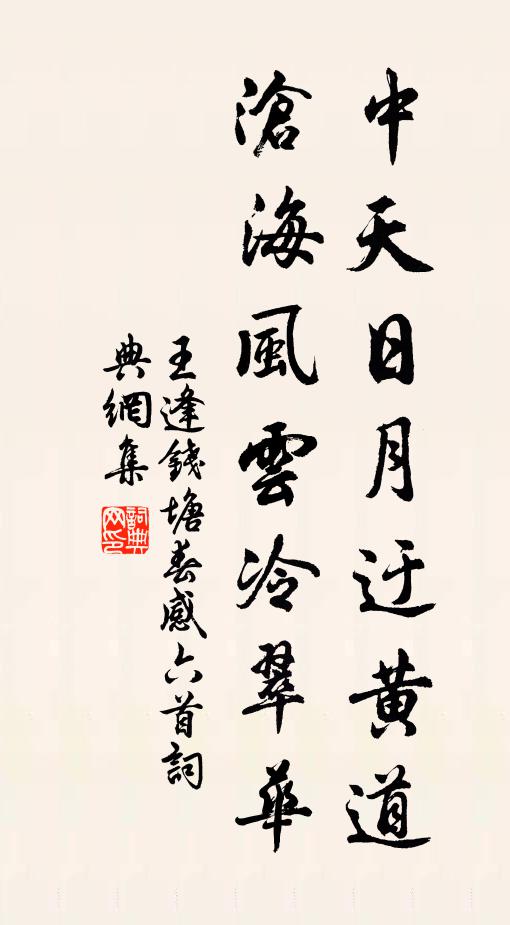 中天日月迂黄道
滄海風雲冷翠華
王逢錢塘春感六首詞
典網集
詞典
网印